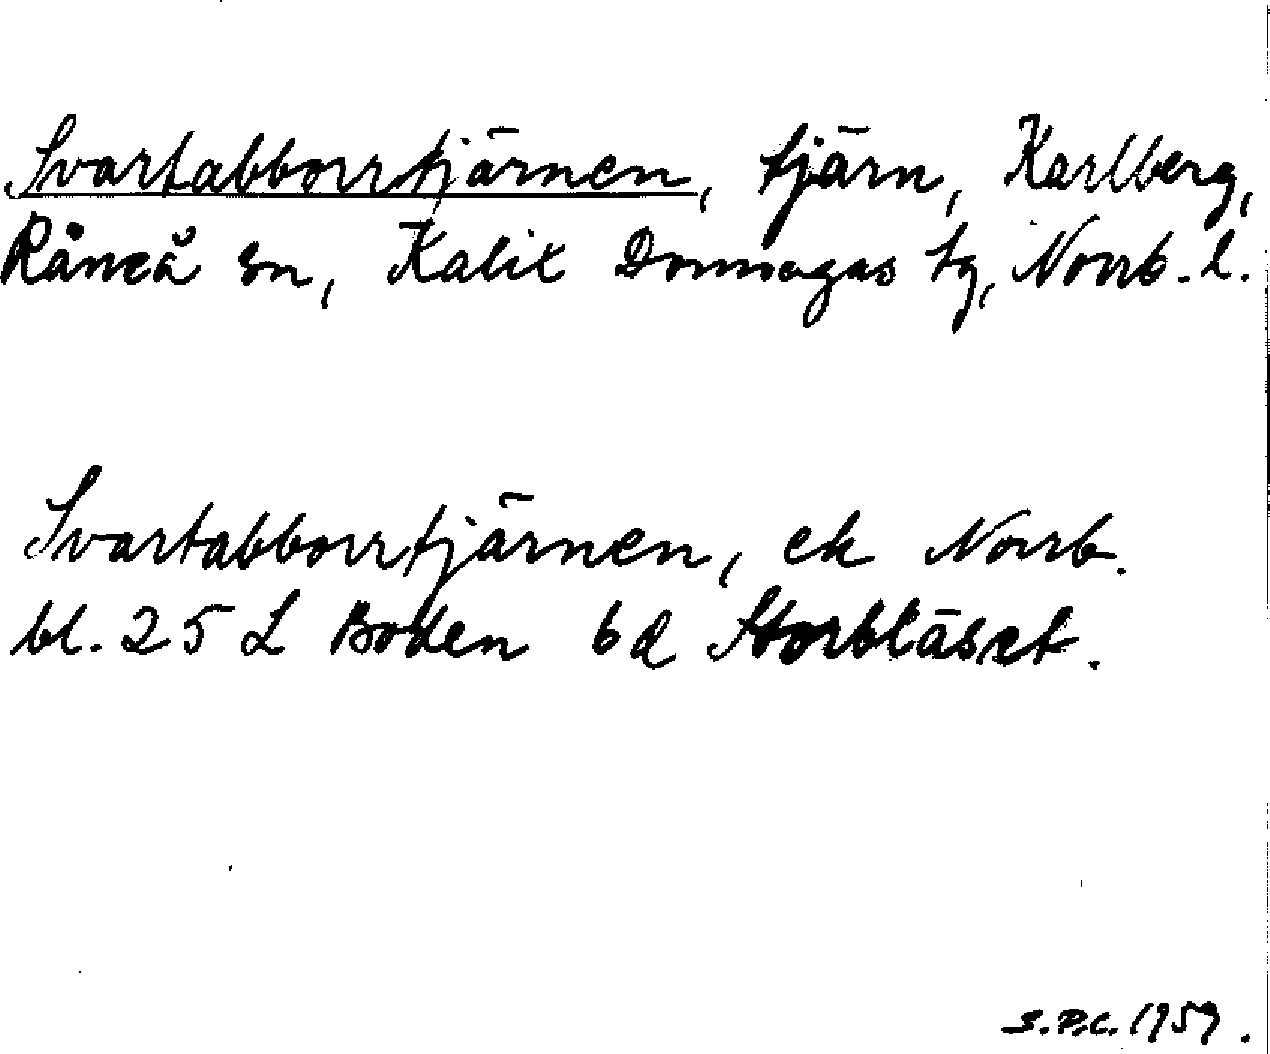 Svartabborrtjärnen, tjärn, Karlberg,
Råneå sn, Kalix Domsagas tg, Norrb. l.
Svartabborrtjärnen, ek Norrb.
bl. 25 L Boden bd Storblåset.
S.P.C. 1959.